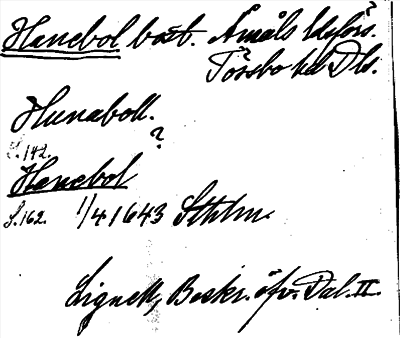 Henebol bost. Åmåls lfs förs.
Tössbo hd Dls.
Hunaboll.
?
S. 142.
Henebol
S. 162. 1/4 1643 Sthlm.
Lignell, Beskr. öfv. Dal. II.